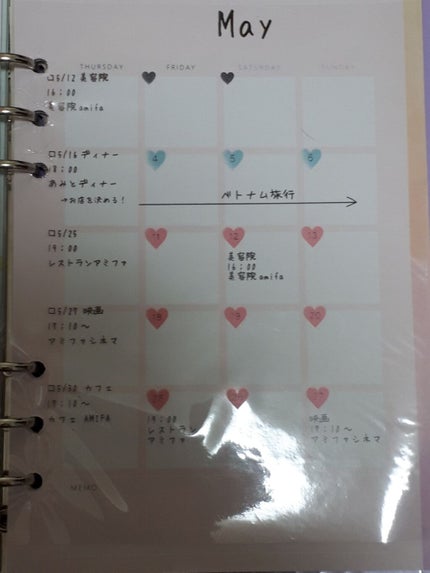 May
THURSDAY FRIDAY SATURDAY SUNDAY
□5/12 美容院
16:00
美容院 amifa
□5/16 ディナー
18:00
あみとディナー
→お店を決める!
4 5 6
ベトナム旅行
□5/25
19:00
レストランアミファ
11 12 13
美容院
16:00
美容院 amifa
□5/27 映画
19:10〜
アミファシネマ
18 19 20
□5/30 カフェ
19:10〜
カフェ AMIFA
19:00
レストラン
アミファ
映画
19:10〜
アミファシネマ
MEMO